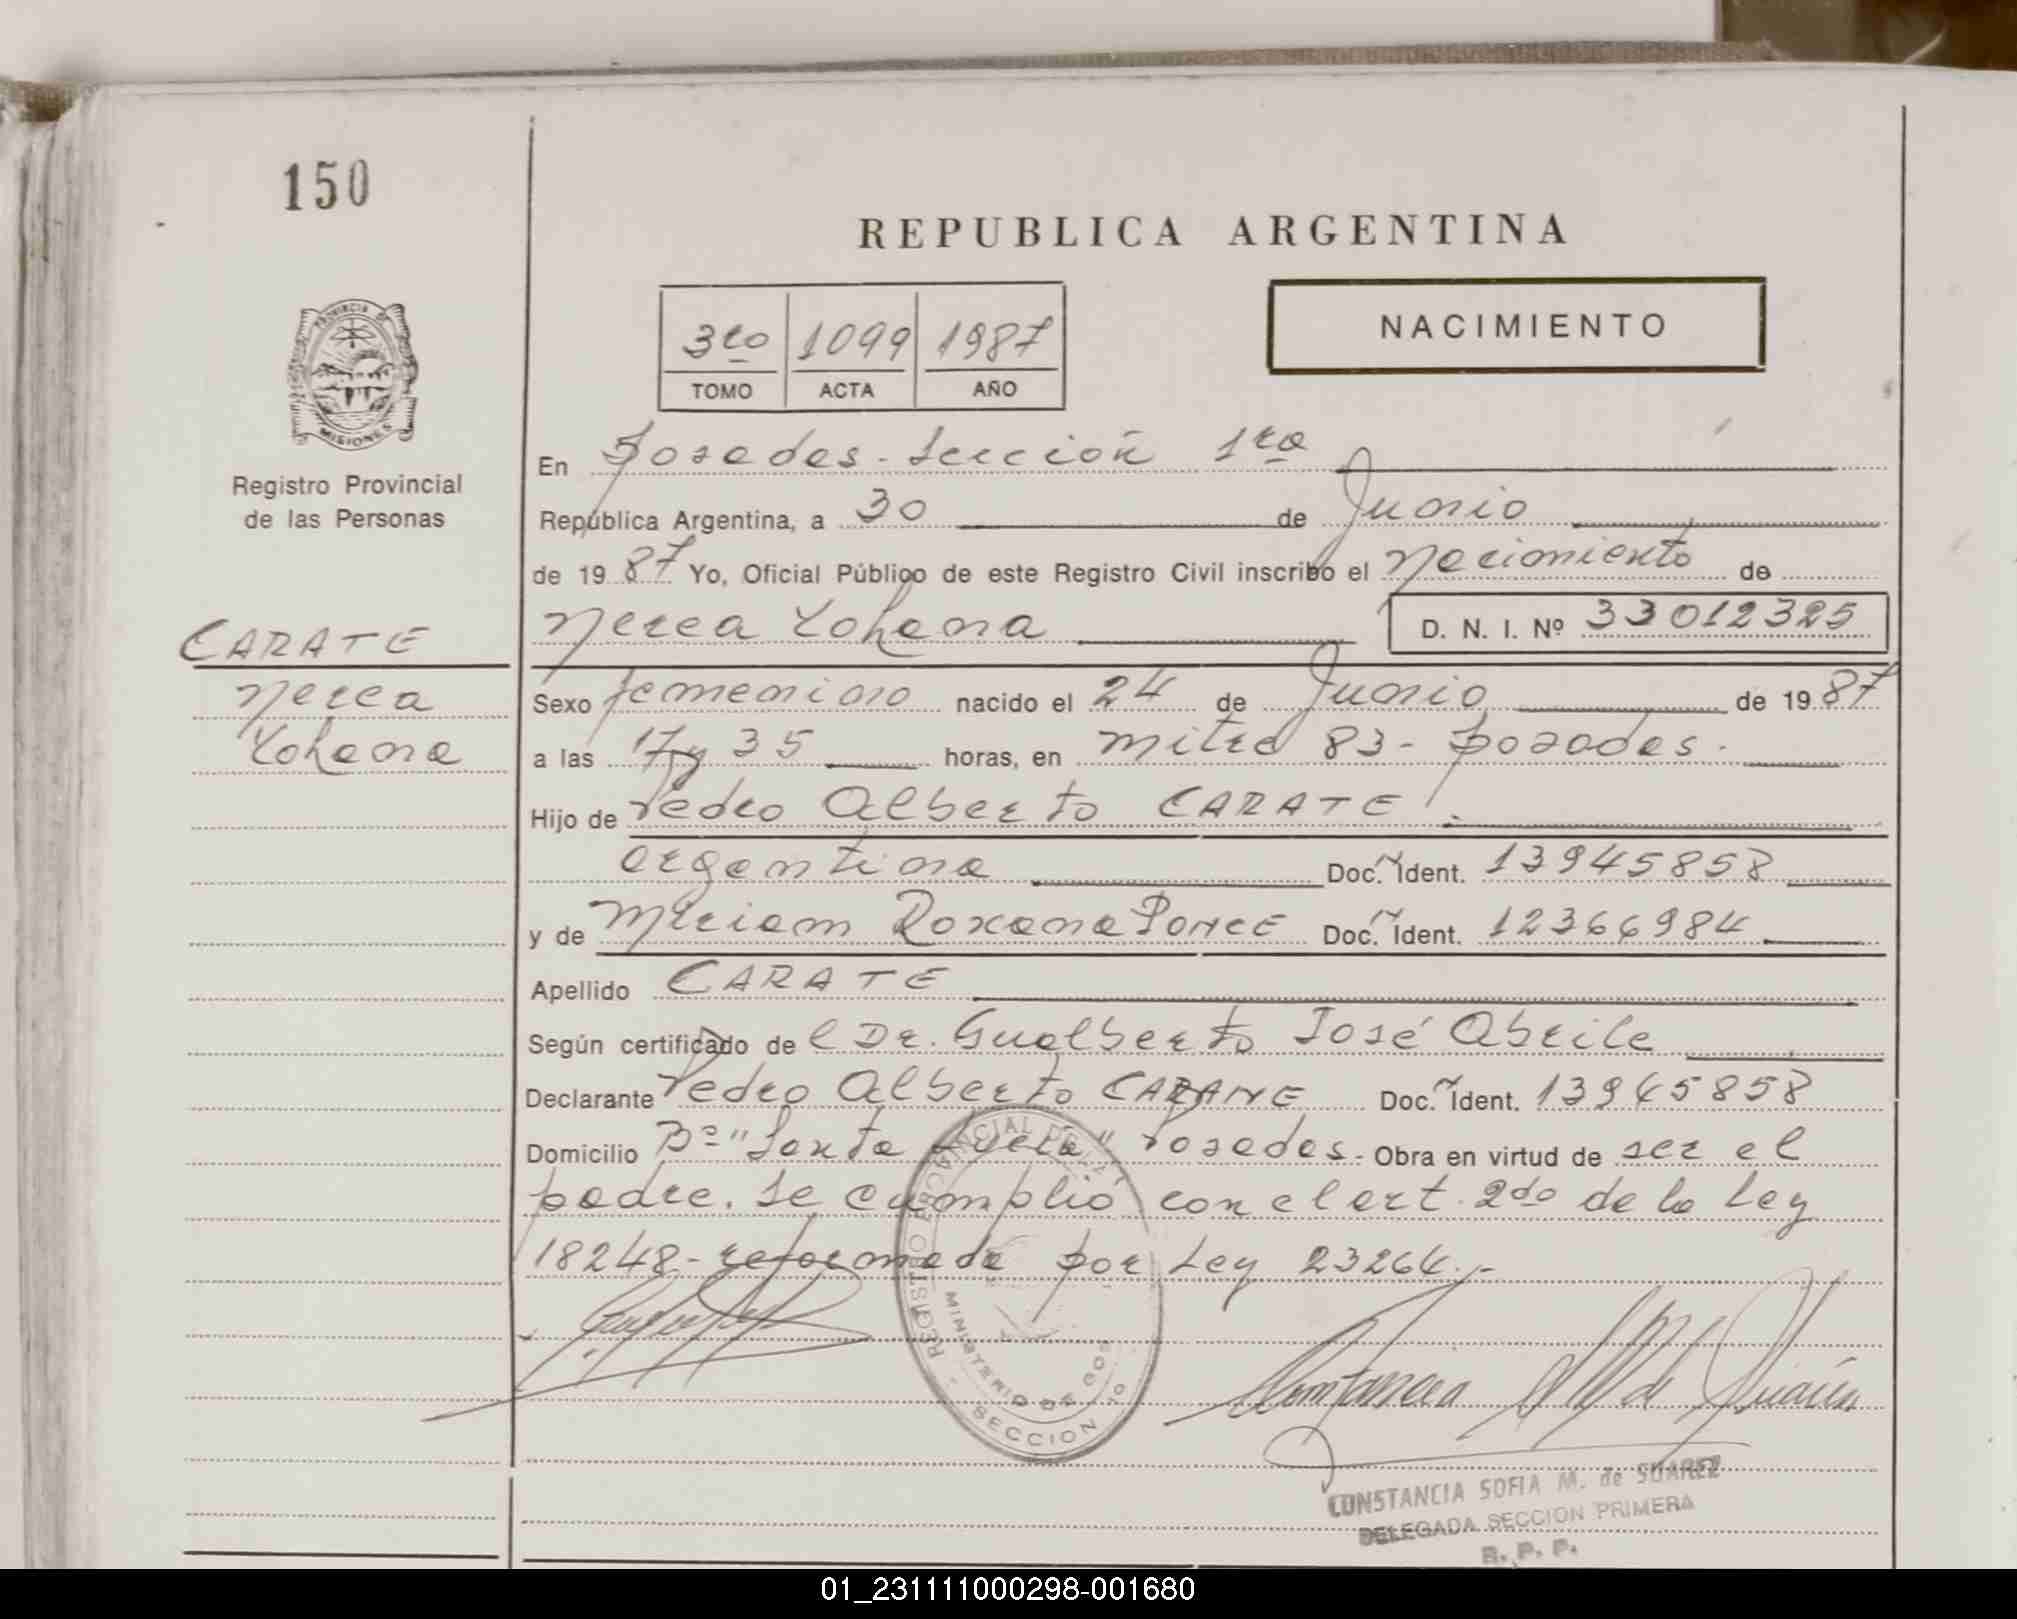 150
REPUBLICA ARGENTINA
3ro 1099 1987
TOMO ACTA AÑO
NACIMIENTO
PROVINCIA DE
MISIONES
Registro Provincial
de las Personas
En Posadas - Sección 1ra
República Argentina, a 30 de Junio
de 1987 Yo, Oficial Público de este Registro Civil inscribo el Nacimiento de
Nerea Yohana D. N. I. Nº 33012325
CARATE
Nerea
Yohana
Sexo femenino nacido el 24 de Junio de 1987
a las 17 y 35 horas, en Mitre 83 - Posadas.
Hijo de Pedro Alberto CARATE.
argentina Doc. N Ident. 13945858
y de Miriam Roxana PONCE Doc. N Ident. 12366984
Apellido CARATE
Según certificado del Dr. Gualberto José Abrile
Declarante Pedro Alberto Doc. N Ident. 13945858
Domicilio Bº "Santa " Posadas. Obra en virtud de ser el
padre. Se cumplió con el art. 2do de la Ley
18248 - reformada por Ley 23264.-
REGISTRO PROVINCIAL DE
MINISTERIO DE GOB
SECCION
Constancia M de Suárez
CONSTANCIA SOFIA M. de SUAREZ
DELEGADA SECCION PRIMERA
R. P. P.
01_231111000298-001680